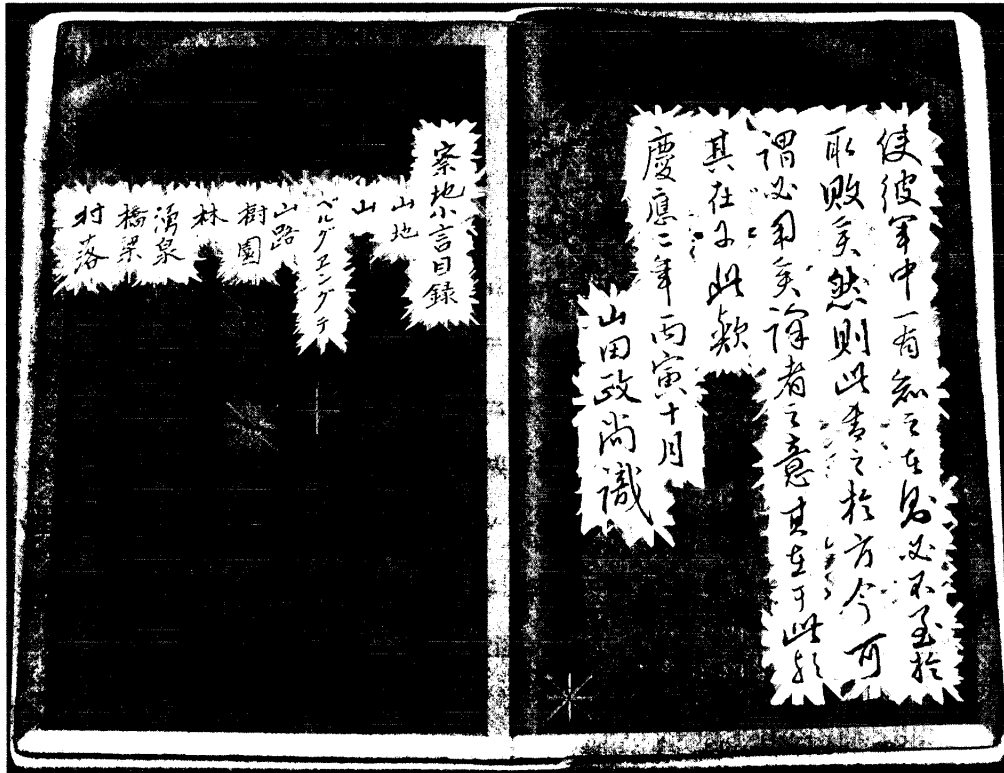 使彼軍中一有知之在則必不至於
取敗矣然則此書之於方今可
謂必用矣譯者之意其在于此歟
其在于此歟
慶應二年丙寅十月
山田政尚識
察地小言目録
山地
山
ベルグヱングテ
山路
樹園
林
湧泉
橋梁
村落